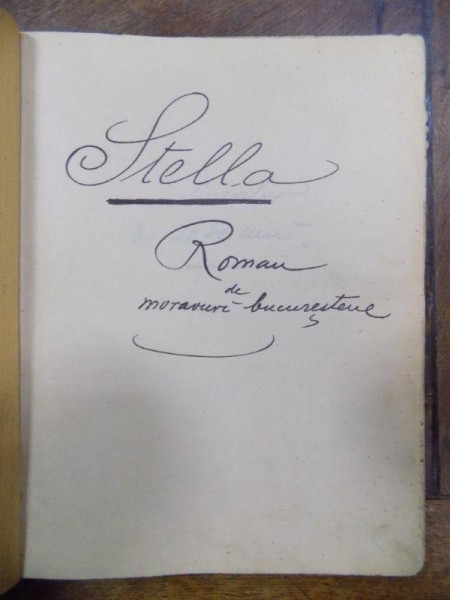 Stella
Roman
de
moravuri bucureștene